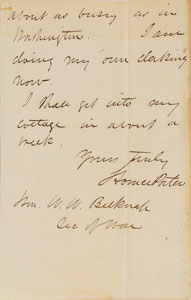 about as busy as in
Washington. I am
doing my "own clerking"
now.
I shall get into my
cottage in about a
week.
Yours truly
Horace Porter
Hon. W. W. Belknap
Sec of War